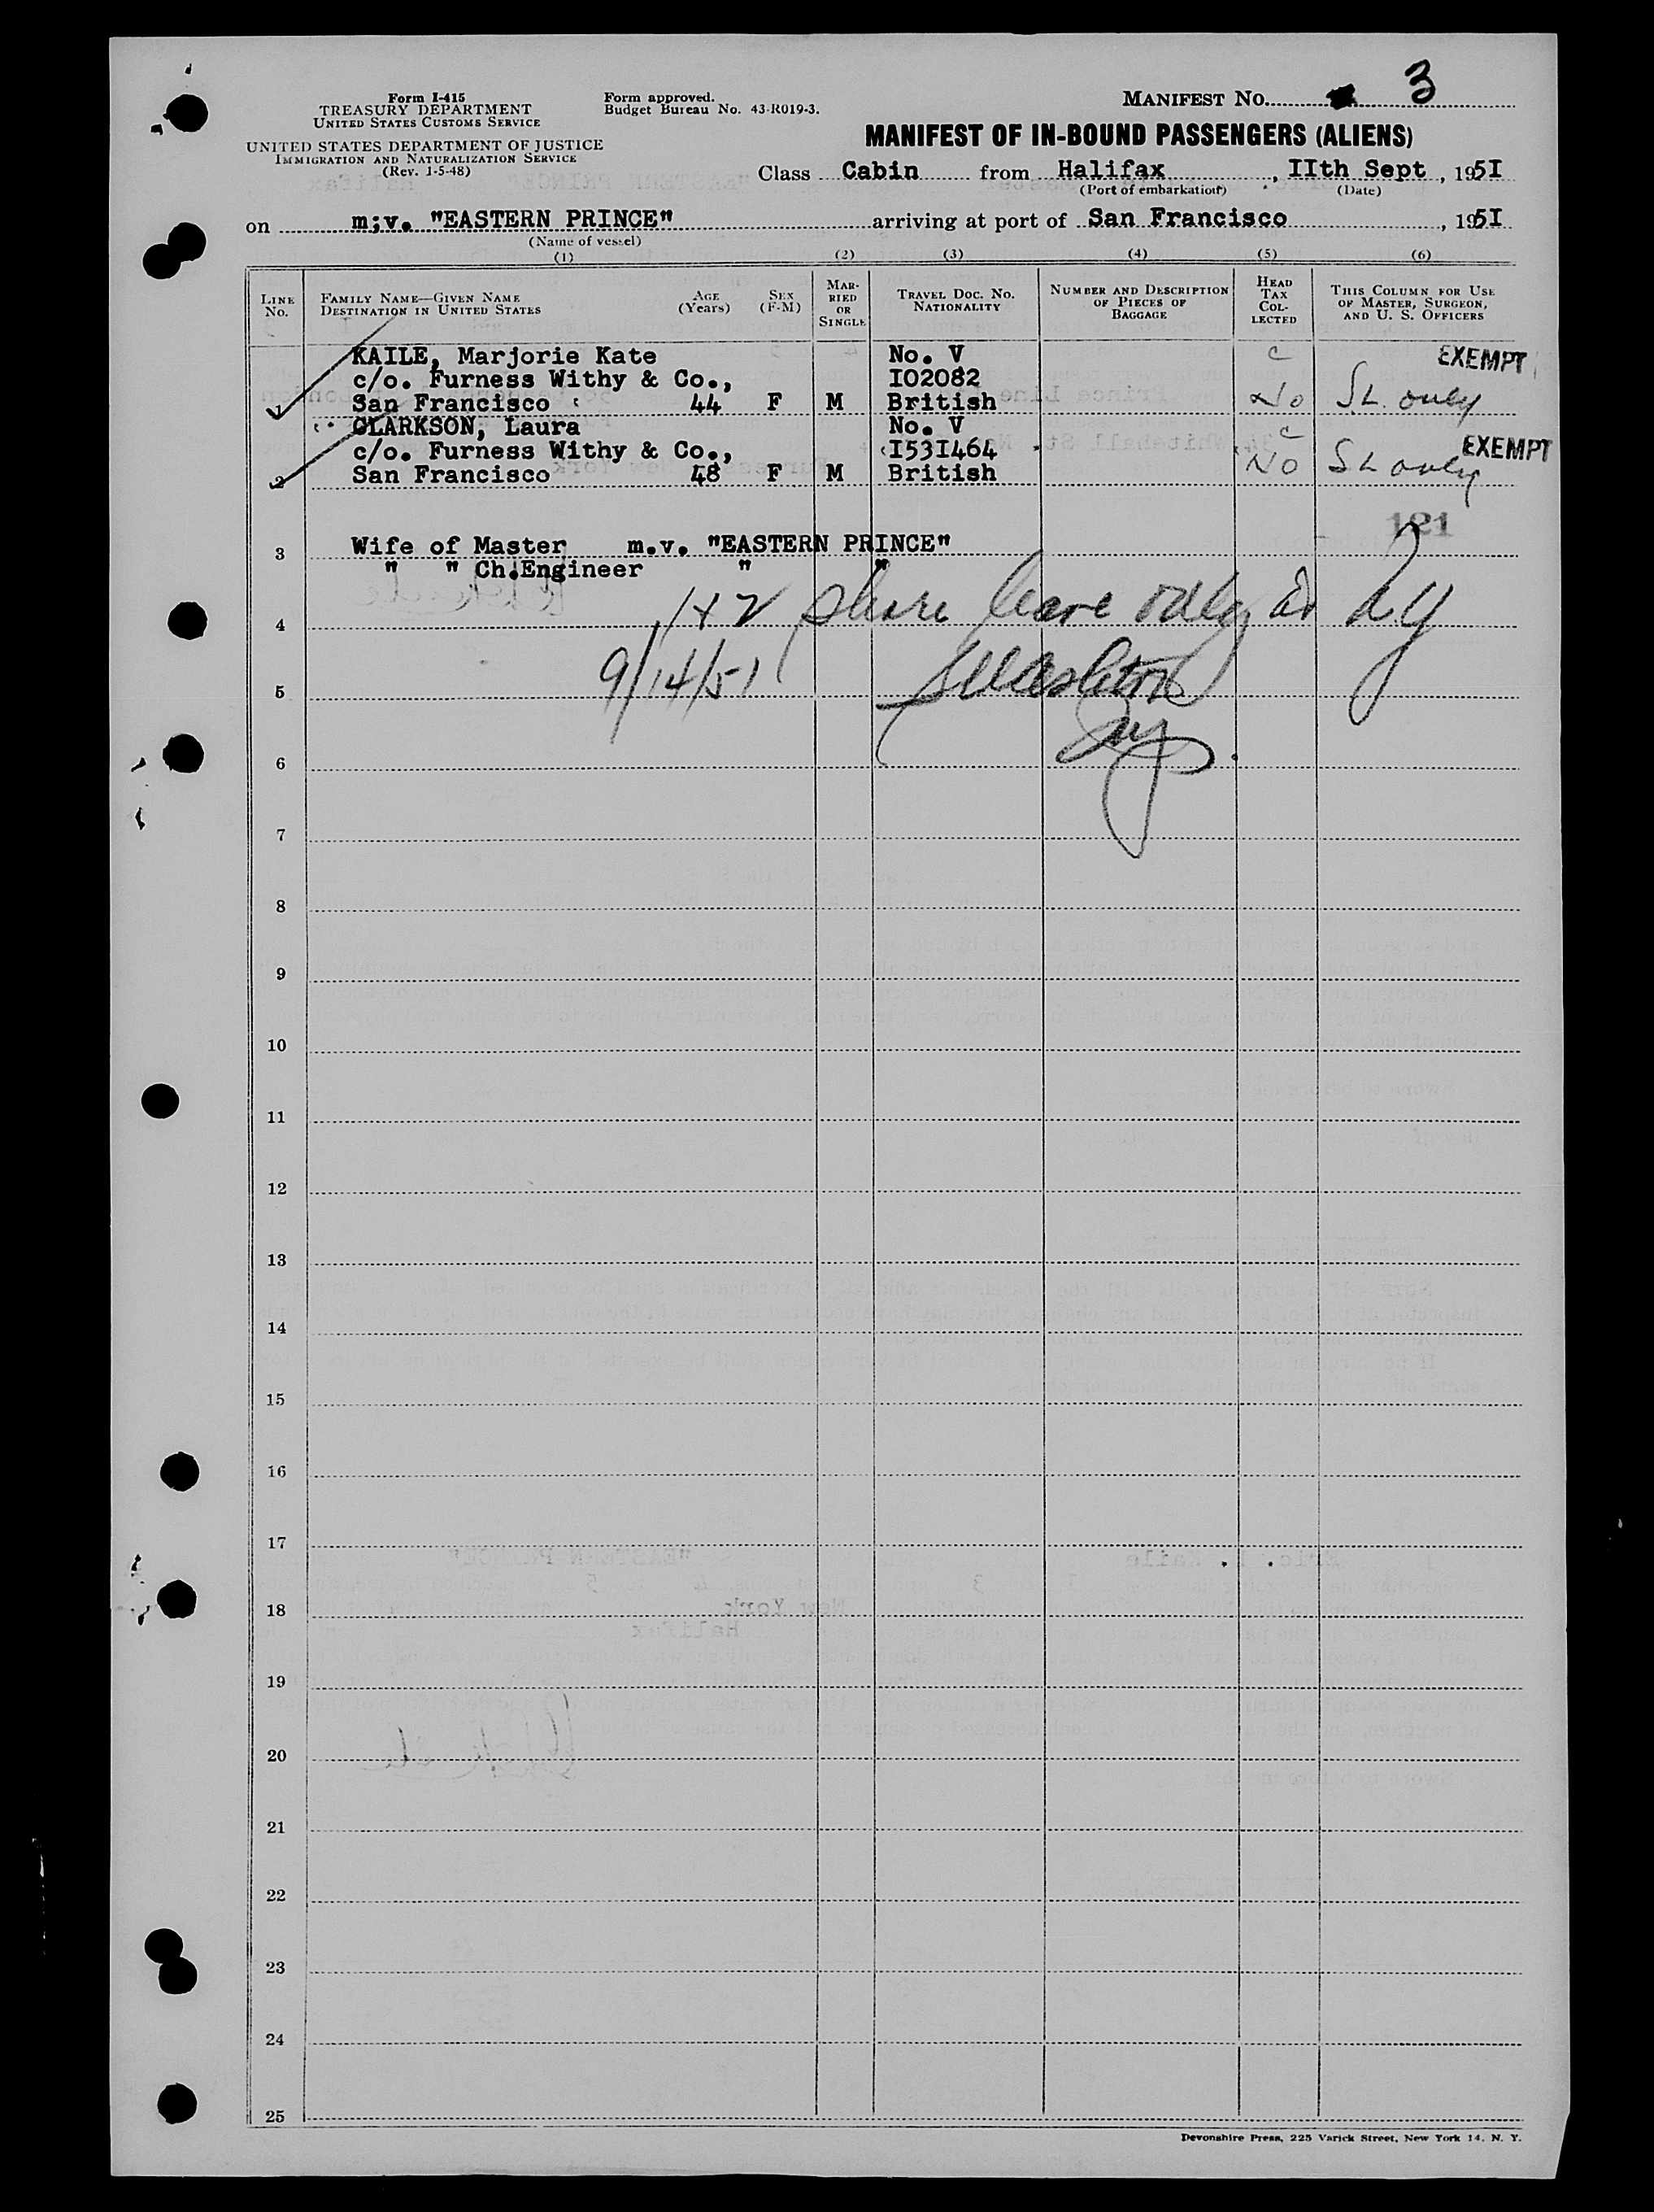 Form I-415
TREASURY DEPARTMENT
UNITED STATES CUSTOMS SERVICE
UNITED STATES DEPARTMENT OF JUSTICE
IMMIGRATION AND NATURALIZATION SERVICE
(Rev. 1-5-48)
Form approved.
Budget Bureau No. 43-R019-3.
MANIFEST No. 3
MANIFEST OF IN-BOUND PASSENGERS (ALIENS)
Class Cabin from Halifax, IIth Sept, 195I
(Port of embarkation) (Date)
on m;v. "EASTERN PRINCE" arriving at port of San Francisco, 195I
(Name of vessel)
(1) (2) (3) (4) (5) (6)
LINE No.
FAMILY NAME—GIVEN NAME
DESTINATION IN UNITED STATES
AGE (Years)
SEX (F-M)
MARRIED OR SINGLE
TRAVEL DOC. NO. NATIONALITY
NUMBER AND DESCRIPTION OF PIECES OF BAGGAGE
HEAD TAX COLLECTED
THIS COLUMN FOR USE OF MASTER, SURGEON, AND U. S. OFFICERS
KAILE, Marjorie Kate No. V C EXEMPT
c/o. Furness Withy & Co., I02082
1 San Francisco 44 F M British No SL only
CLARKSON, Laura No. V C EXEMPT
c/o. Furness Withy & Co., I53I464
2 San Francisco 48 F M British No SL only
121
3 Wife of Master m.v. "EASTERN PRINCE"
" " Ch.Engineer " "
4 1+2 shore leave only at NY
5 9/14/51
6
7
8
9
10
11
12
13
14
15
16
17
18
19
20
21
22
23
24
25
Devonshire Press, 225 Varick Street, New York 14, N. Y.